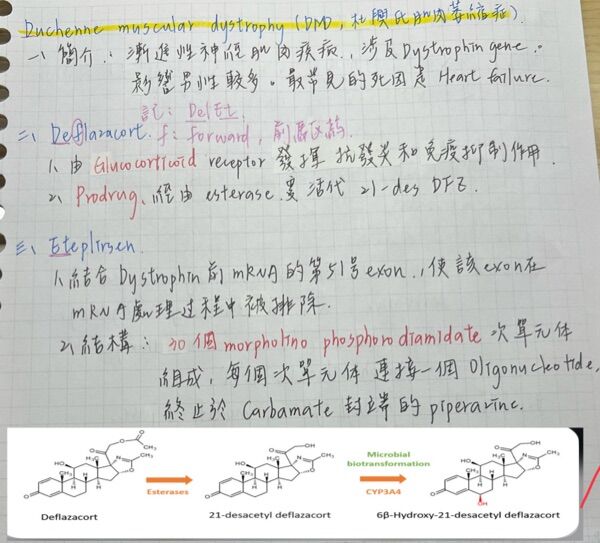 Duchenne muscular dystrophy (DMD, 杜興氏肌肉萎縮症)
一、簡介:漸進性神經肌肉疾病,涉及Dystrophin gene。
影響男性較多。最常見的死因是Heart failure.
記:DelEt.
二、Deflazacort. f: forward, 前驅藥
1、由Glucocorticoid receptor 發揮抗發炎和免疫抑制作用.
2、Prodrug、經由esterase變活代 21-des DFZ.
三、Eteplirsen
1、結合Dystrophin前mRNA的第51号exon.,使該exon在
mRNA處理过程中被排除.
2、結構:30個morpholino phosphorodiamidate次單元体
組成,每個次單元体連接一個Oligonucleotide,
終止於Carbamate封端的piperazine.
Deflazacort
Esterases
21-desacetyl deflazacort
Microbial
biotransformation
CYP3A4
6β-Hydroxy-21-desacetyl deflazacort